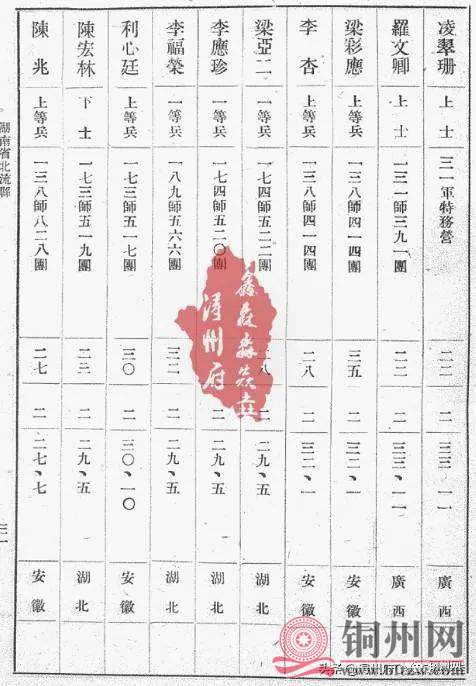 凌翠珊 上士 三一軍特務營 二二 二 三三 一一 廣西
羅文卿 上士 一三一師三九一團 二二 二 三三、一一 廣西
梁彩應 上等兵 一三八師四一四團 三五 二 三二、一 安徽
李杏 上等兵 一三八師四一四團 二八 二 三二、一 安徽
梁亞二 一等兵 一七四師五二二團 八 二 二九、五 湖北
李應珍 一等兵 一七四師五二〇團 二九、五 湖北
李福榮 一等兵 一八九師五六六團 三二 二 二九、五 湖北
利心廷 上等兵 一七三師五一七團 三〇 二 三〇、一〇 安徽
陳宏林 下士 一七三師五一九團 二三 二 二九、五 湖北
陳兆 上等兵 一三八師八二八團 二七 二 二七、七 安徽
湖南省北流縣
三一
鑫森淼焱垚
潯州府
铜州网
头条